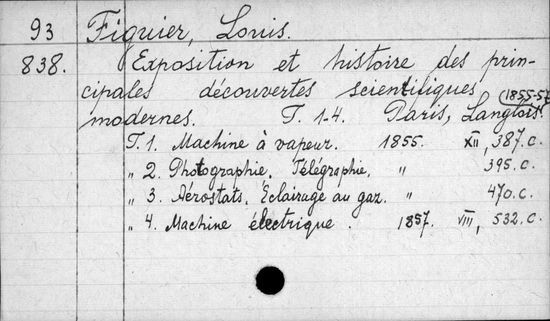 93 Figuier, Louis.
838. Exposition et histoire des prin-
cipales découvertes scientifiques
modernes. T. 1-4. Paris, Langlois. (1855-57
T. 1. Machine à vapeur. 1855. XII, 387. c.
„ 2. Photographie. Télégraphie. „ 395. c.
„ 3. Aérostats. Eclairage au gaz. „ 470. c.
„ 4. Machine électrique. 1857. VIII, 532. c.